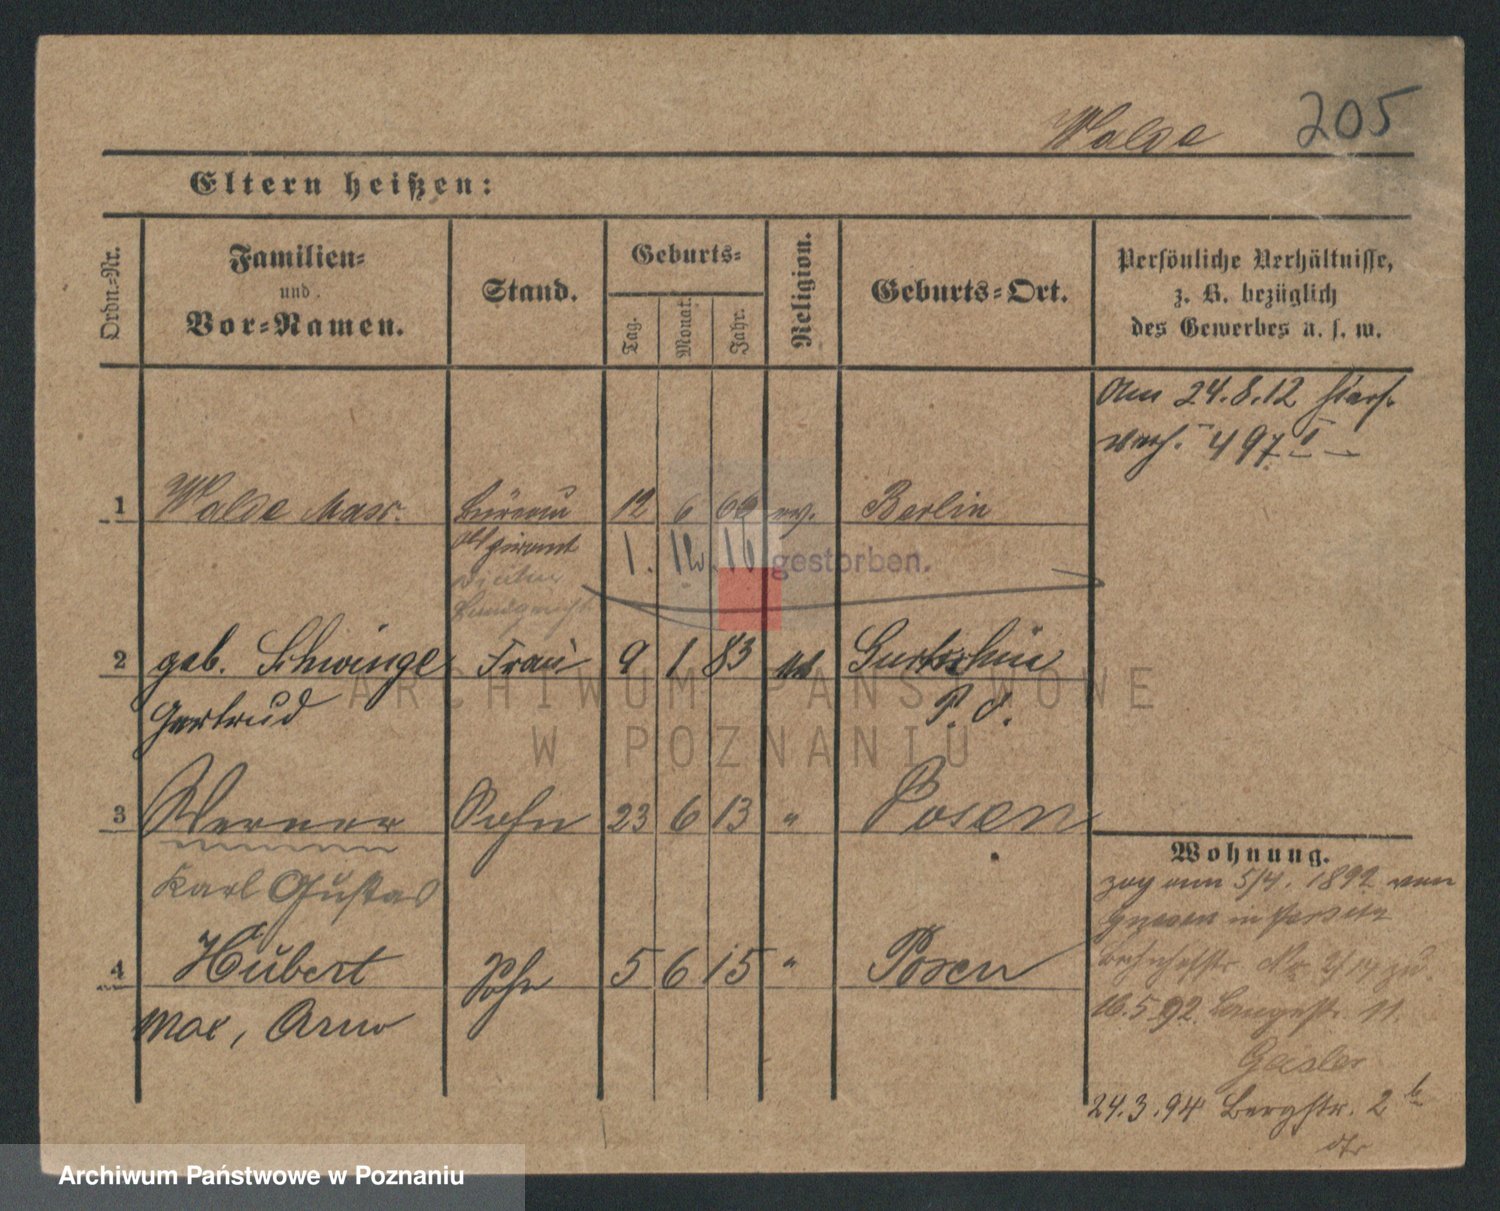 205
Walde
Eltern heißen:
Ordn.-Nr.
Familien-
und
Vor-Namen.
Stand.
Geburts-
Tag.
Monat.
Jahr.
Religion.
Geburts-Ort.
Persönliche Verhältnisse,
z. B. bezüglich
des Gewerbes u. s. w.
Am 24.8.12
497
1 Walde Max. Büreau 12 6 ev. Berlin
1. 12. 16 gestorben.
2 geb. Schwinge Frau 9 1 83
Gertrud
3 Werner Sohn 23 6 13 " Posen
Karl Gustav
4 Hubert Sohn 5 6 15 " Posen
Max, Arno
Wohnung.
zog am 5/4. 1892 von
Gnesen in
16.5.92. Langestr. 11.
Geisler
24.3.94 Bergstr. 2 b
ARCHIWUM PAŃSTWOWE
W POZNANIU
Archiwum Państwowe w Poznaniu